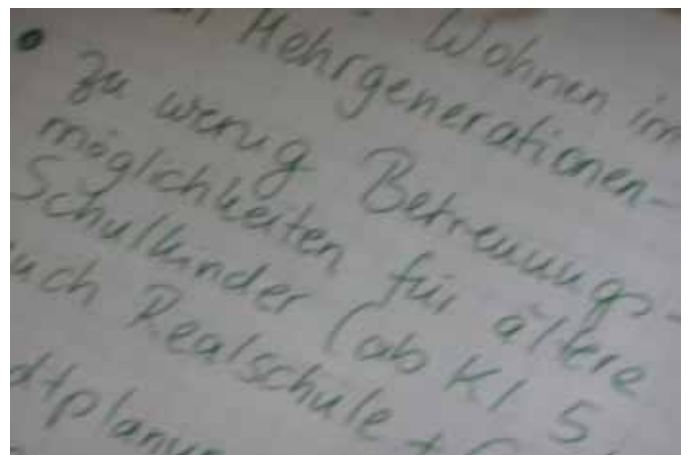 Wohnen im
Mehrgenerationen-
• zu wenig Betreuungs-
möglichkeiten für ältere
Schulkinder (ab Kl 5
uch Realschule +
dtplanu